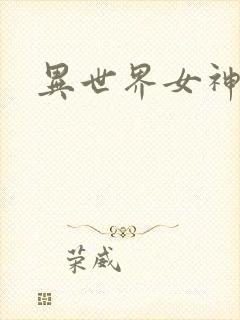 異世界女神
荣威